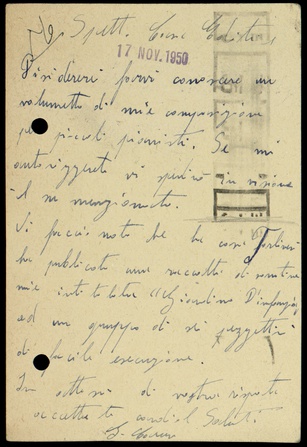 Spett. Casa Editrice,
17 NOV. 1950
Desidererei farvi conoscere un
volumetto di mie composizioni
per piccoli pianisti. Se mi
autorizzerete vi spedirò in visione
il su menzionato.
Vi faccio noto che la casa Forlivesi
ha pubblicato una raccolta di sonatine
mie intitolata "Giardino D'infanzia
ed un gruppo di sei pezzettini
di facile esecuzione.
In attesa di vostra risposta
accettate cordiali Saluti